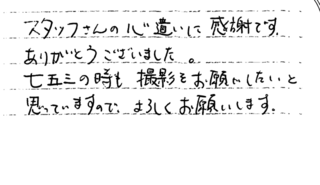 スタッフさんの心遣いに感謝です.
ありがとうございました。
七五三の時も撮影をお願いしたいと
思っていますので、よろしくお願いします.